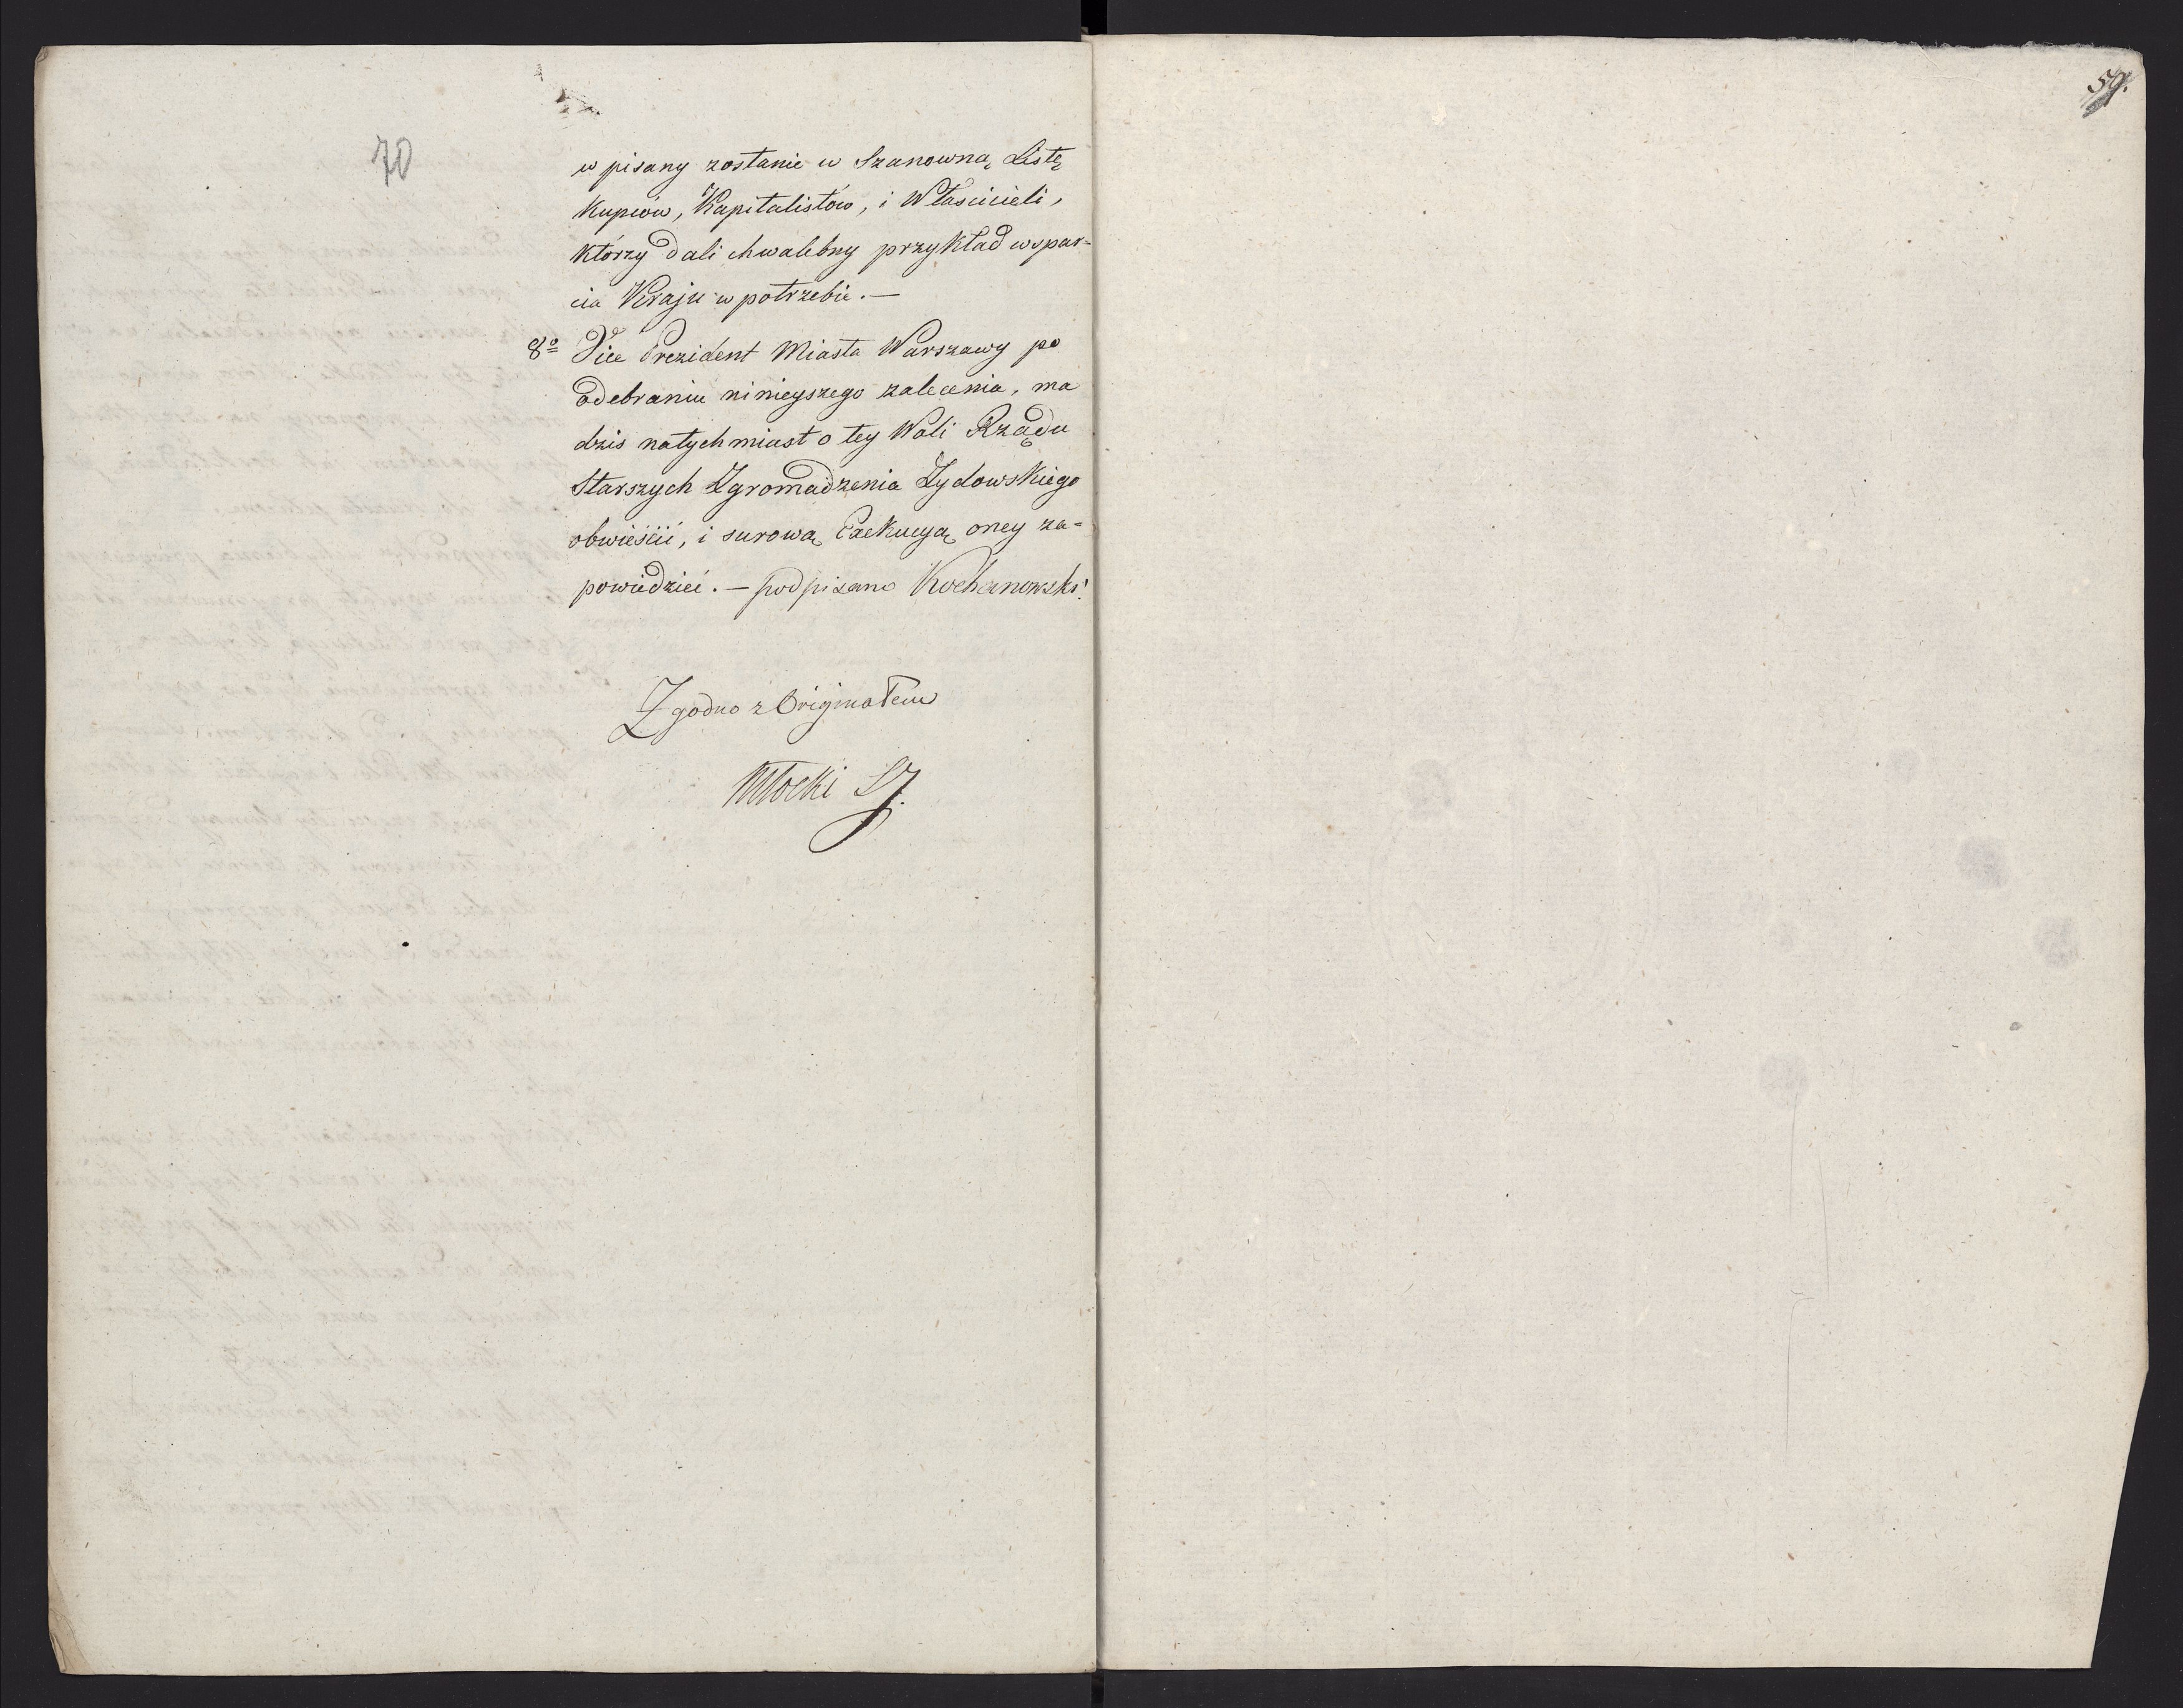 70
w pisany zostanie w Szanowną Listę
Kupców, Kapitalistów, i Włascicieli,
którzy dali chwalebny przykład wspar=
cia Kraju w potrzebie. —
8o Vice Prezident Miasta Warszawy po
odebraniu ninieyszego zalecenia, ma
dzis natychmiast o tey Woli Rządu
Starszych Zgromadzenia Zydowskiego
obwieścić, i surową Exekucyą oney za=
powiedzieć. — podpisano Kochanowski.
Zgodno z Originałem
Młocki
59.